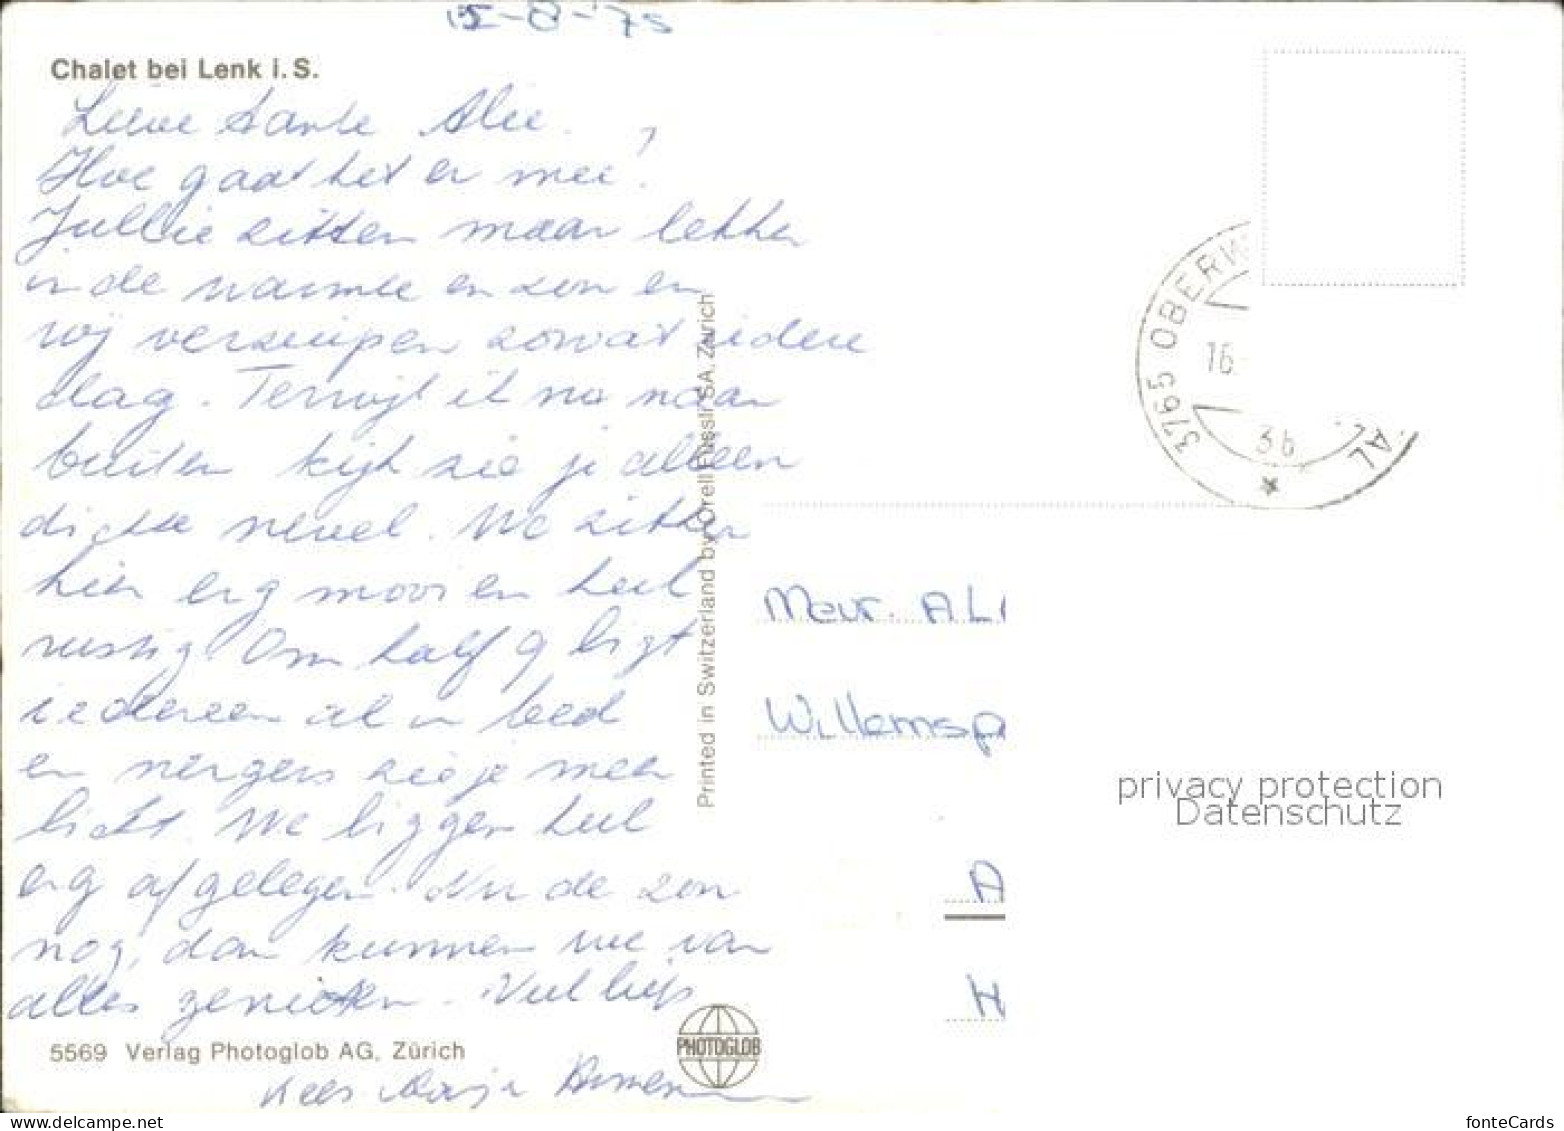 15-8-'75
Chalet bei Lenk i. S.
Lieve tante Alie.
Hoe gaat het er mee?
Jullie zitten maar lekker
in de warmte en zon en
wij verzuipen zowat iedere
dag. Terwijl ik nu naar
buiten kijk zie je alleen
dichte nevel. We zitten
hier erg mooi en heel
rustig. Om half 9 ligt
iedereen al in bed
en nergens zie je meer
licht. We liggen heel
erg afgelegen. Nu de zon
nog, dan kunnen we van
alles genieten. Veel liefs
Kees Marja
5569 Verlag Photoglob AG, Zürich
PHOTOGLOB
Printed in Switzerland by Orell Füssli SA, Zürich
3765 OBERW
AL
16.
36
Mevr. ALI
Willemsp
A
H
privacy protection
Datenschutz
fonteCards